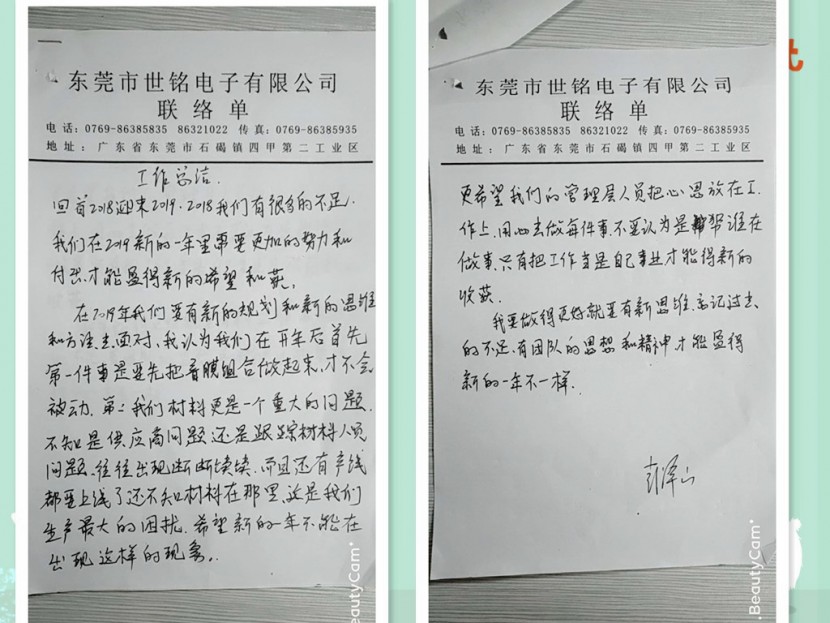 东莞市世铭电子有限公司
联络单
电话：0769-86385835 86321022 传真：0769-86385935
地址：广东省东莞市石碣镇四甲第二工业区
工作总结.
回首2018迎来2019.2018我们有很多的不足.
我们在2019新的一年里需要更加的努力和
付出才能赢得新的希望和获.
在2019年我们要有新的规划和新的思维
和方法去面对.我认为我们在开年后首先
第一件事是要先把音膜组合做起来,才不会
被动.第二我们材料更是一个重大的问题.
不知是供应商问题还是跟踪材料人员
问题.往往出现断断续续.而且还有产线
都要上线了还不知材料在那里.这是我们
生产最大的困扰.希望新的一年不能在
出现这样的现象..
eautyCam
东莞市世铭电子有限公司
联络单
电话：0769-86385835 86321022 传真：0769-86385935
地址：广东省东莞市石碣镇四甲第二工业区
更希望我们的管理层人员把心思放在工
作上.用心去做每件事不要认为是帮谁在
做事.只有把工作当是自己事业才能得新的
收获.
我要做得更好就要有新思维.忘记过去
的不足.有团队的思想和精神才能赢得
新的一年不一样.
BeautyCam